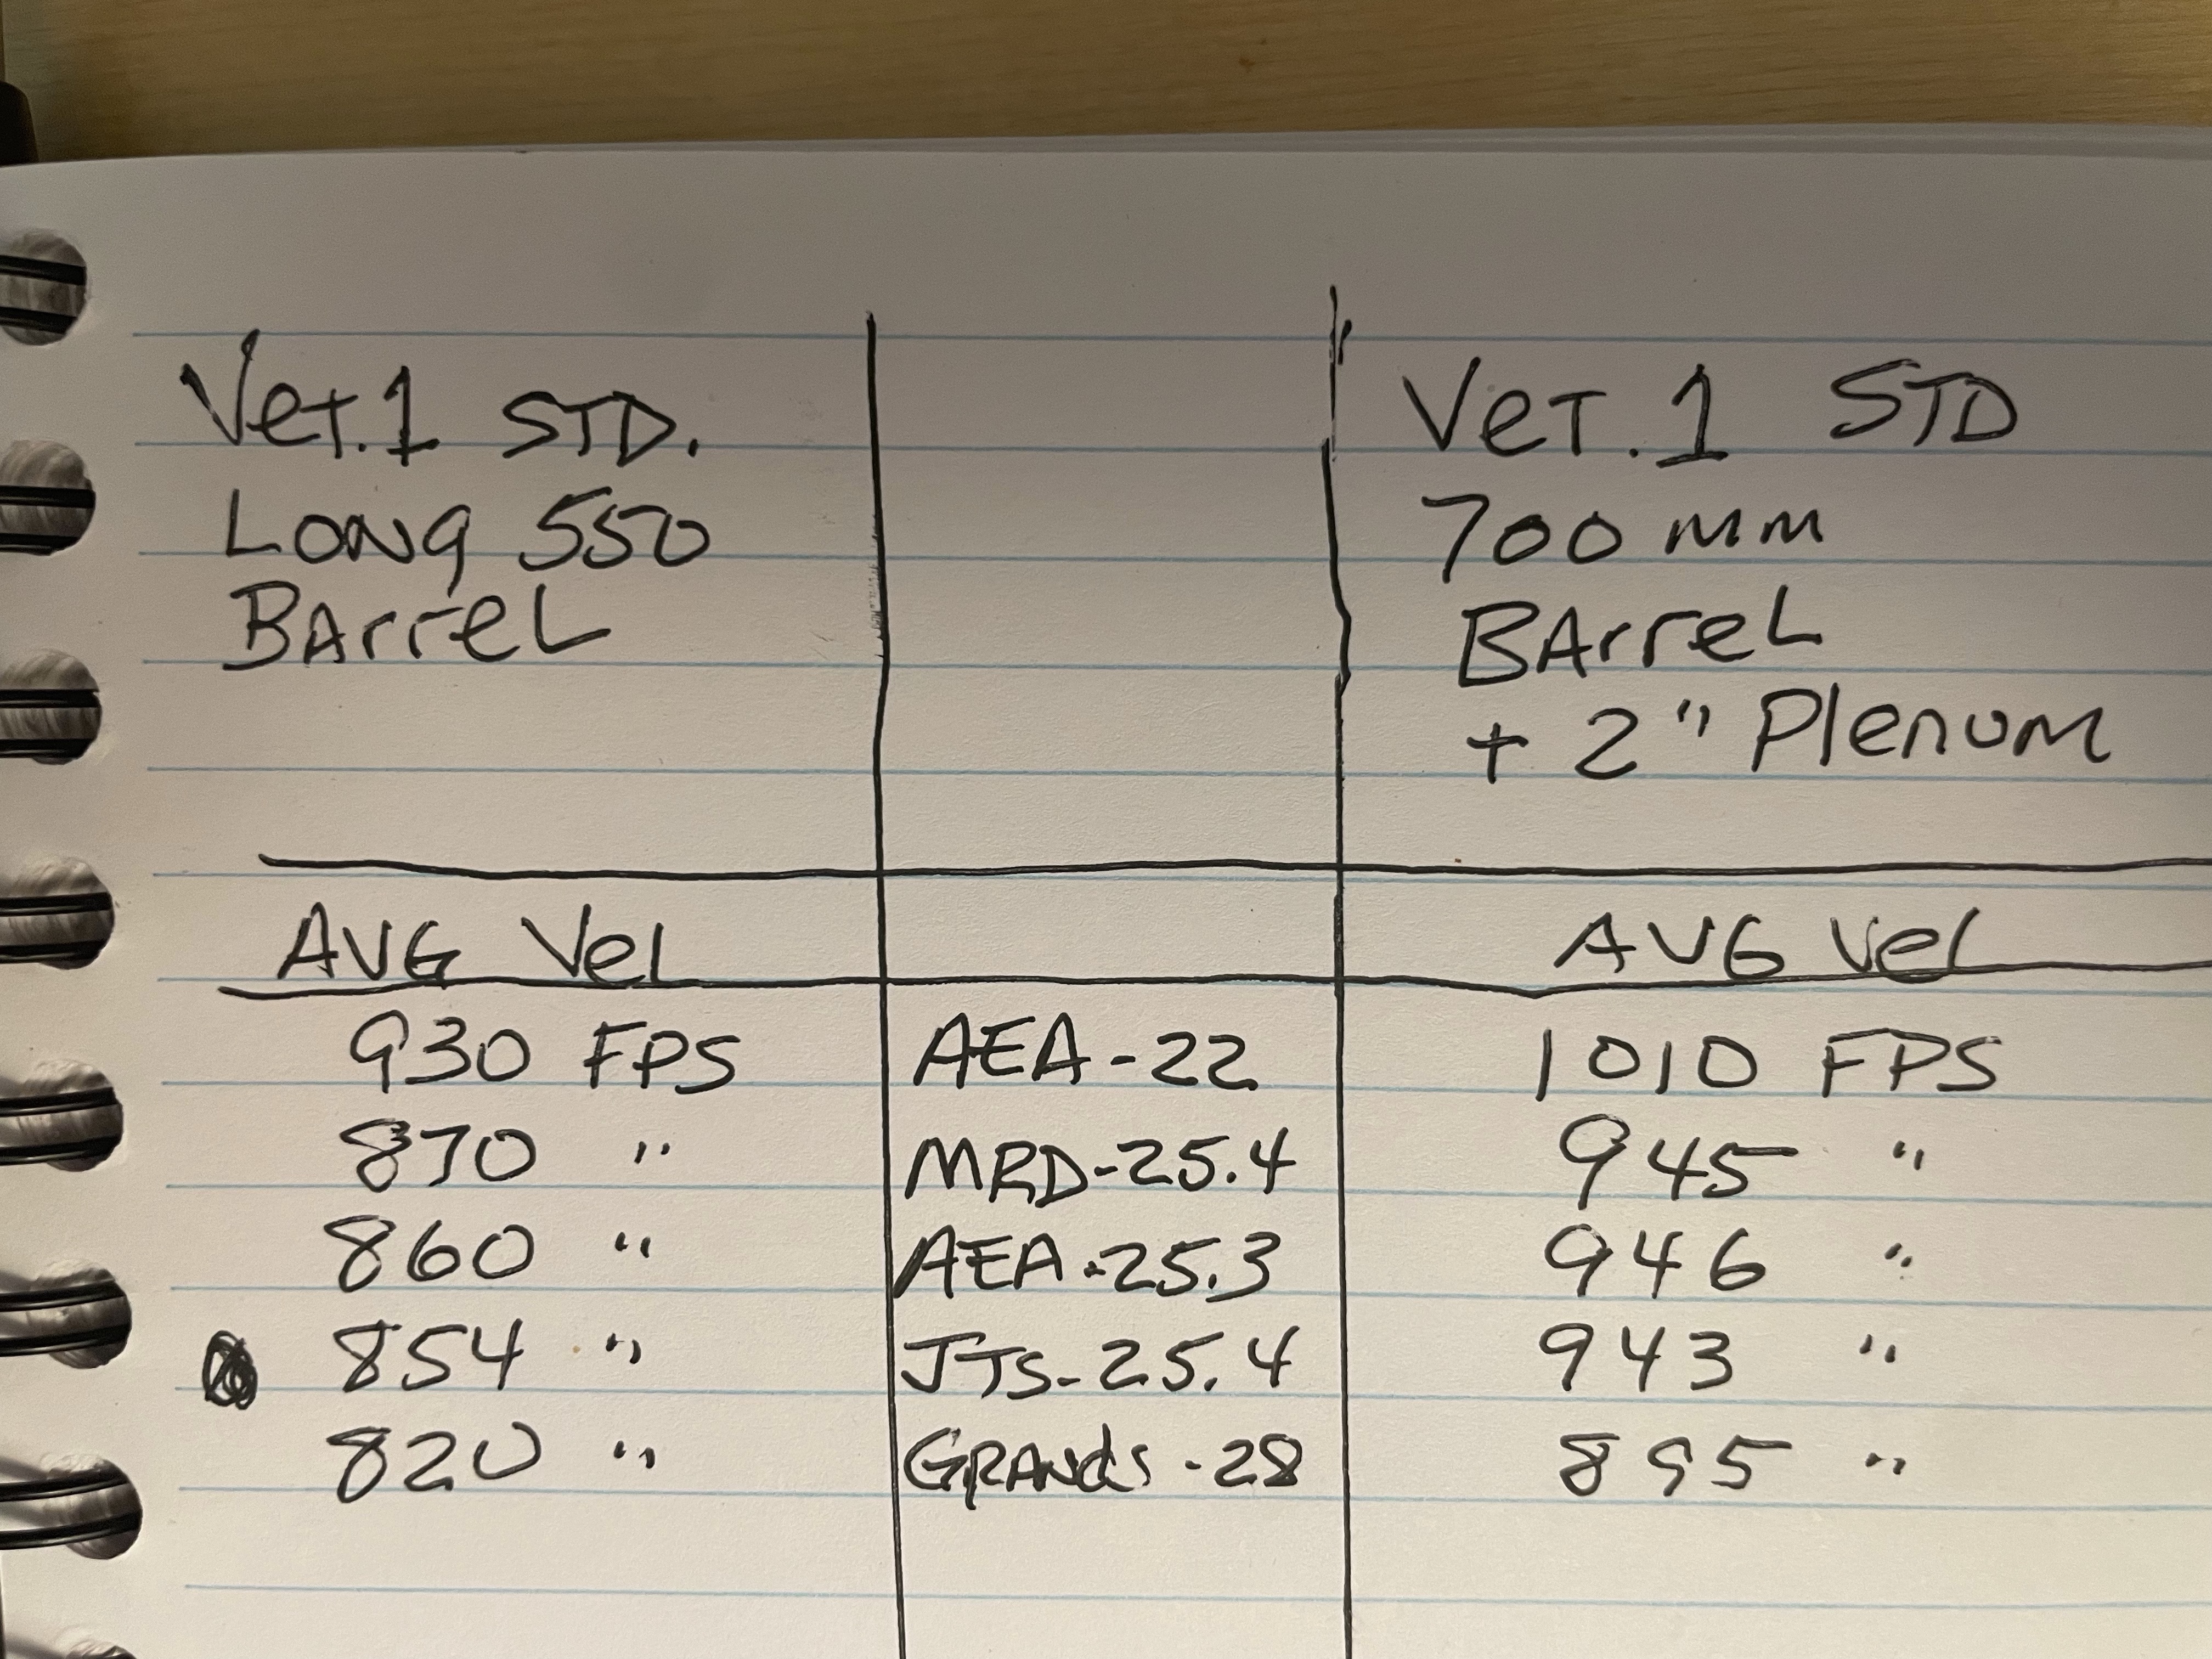 Vet.1 STD.
Long 550
Barrel
Vet.1 STD
700 mm
Barrel
+ 2" Plenum
AVG Vel
AVG Vel
930 FPS AEA-22 1010 FPS
870 " MRD-25.4 945 "
860 " AEA-25.3 946 "
854 " JTS-25.4 943 "
820 " Grands-28 895 "